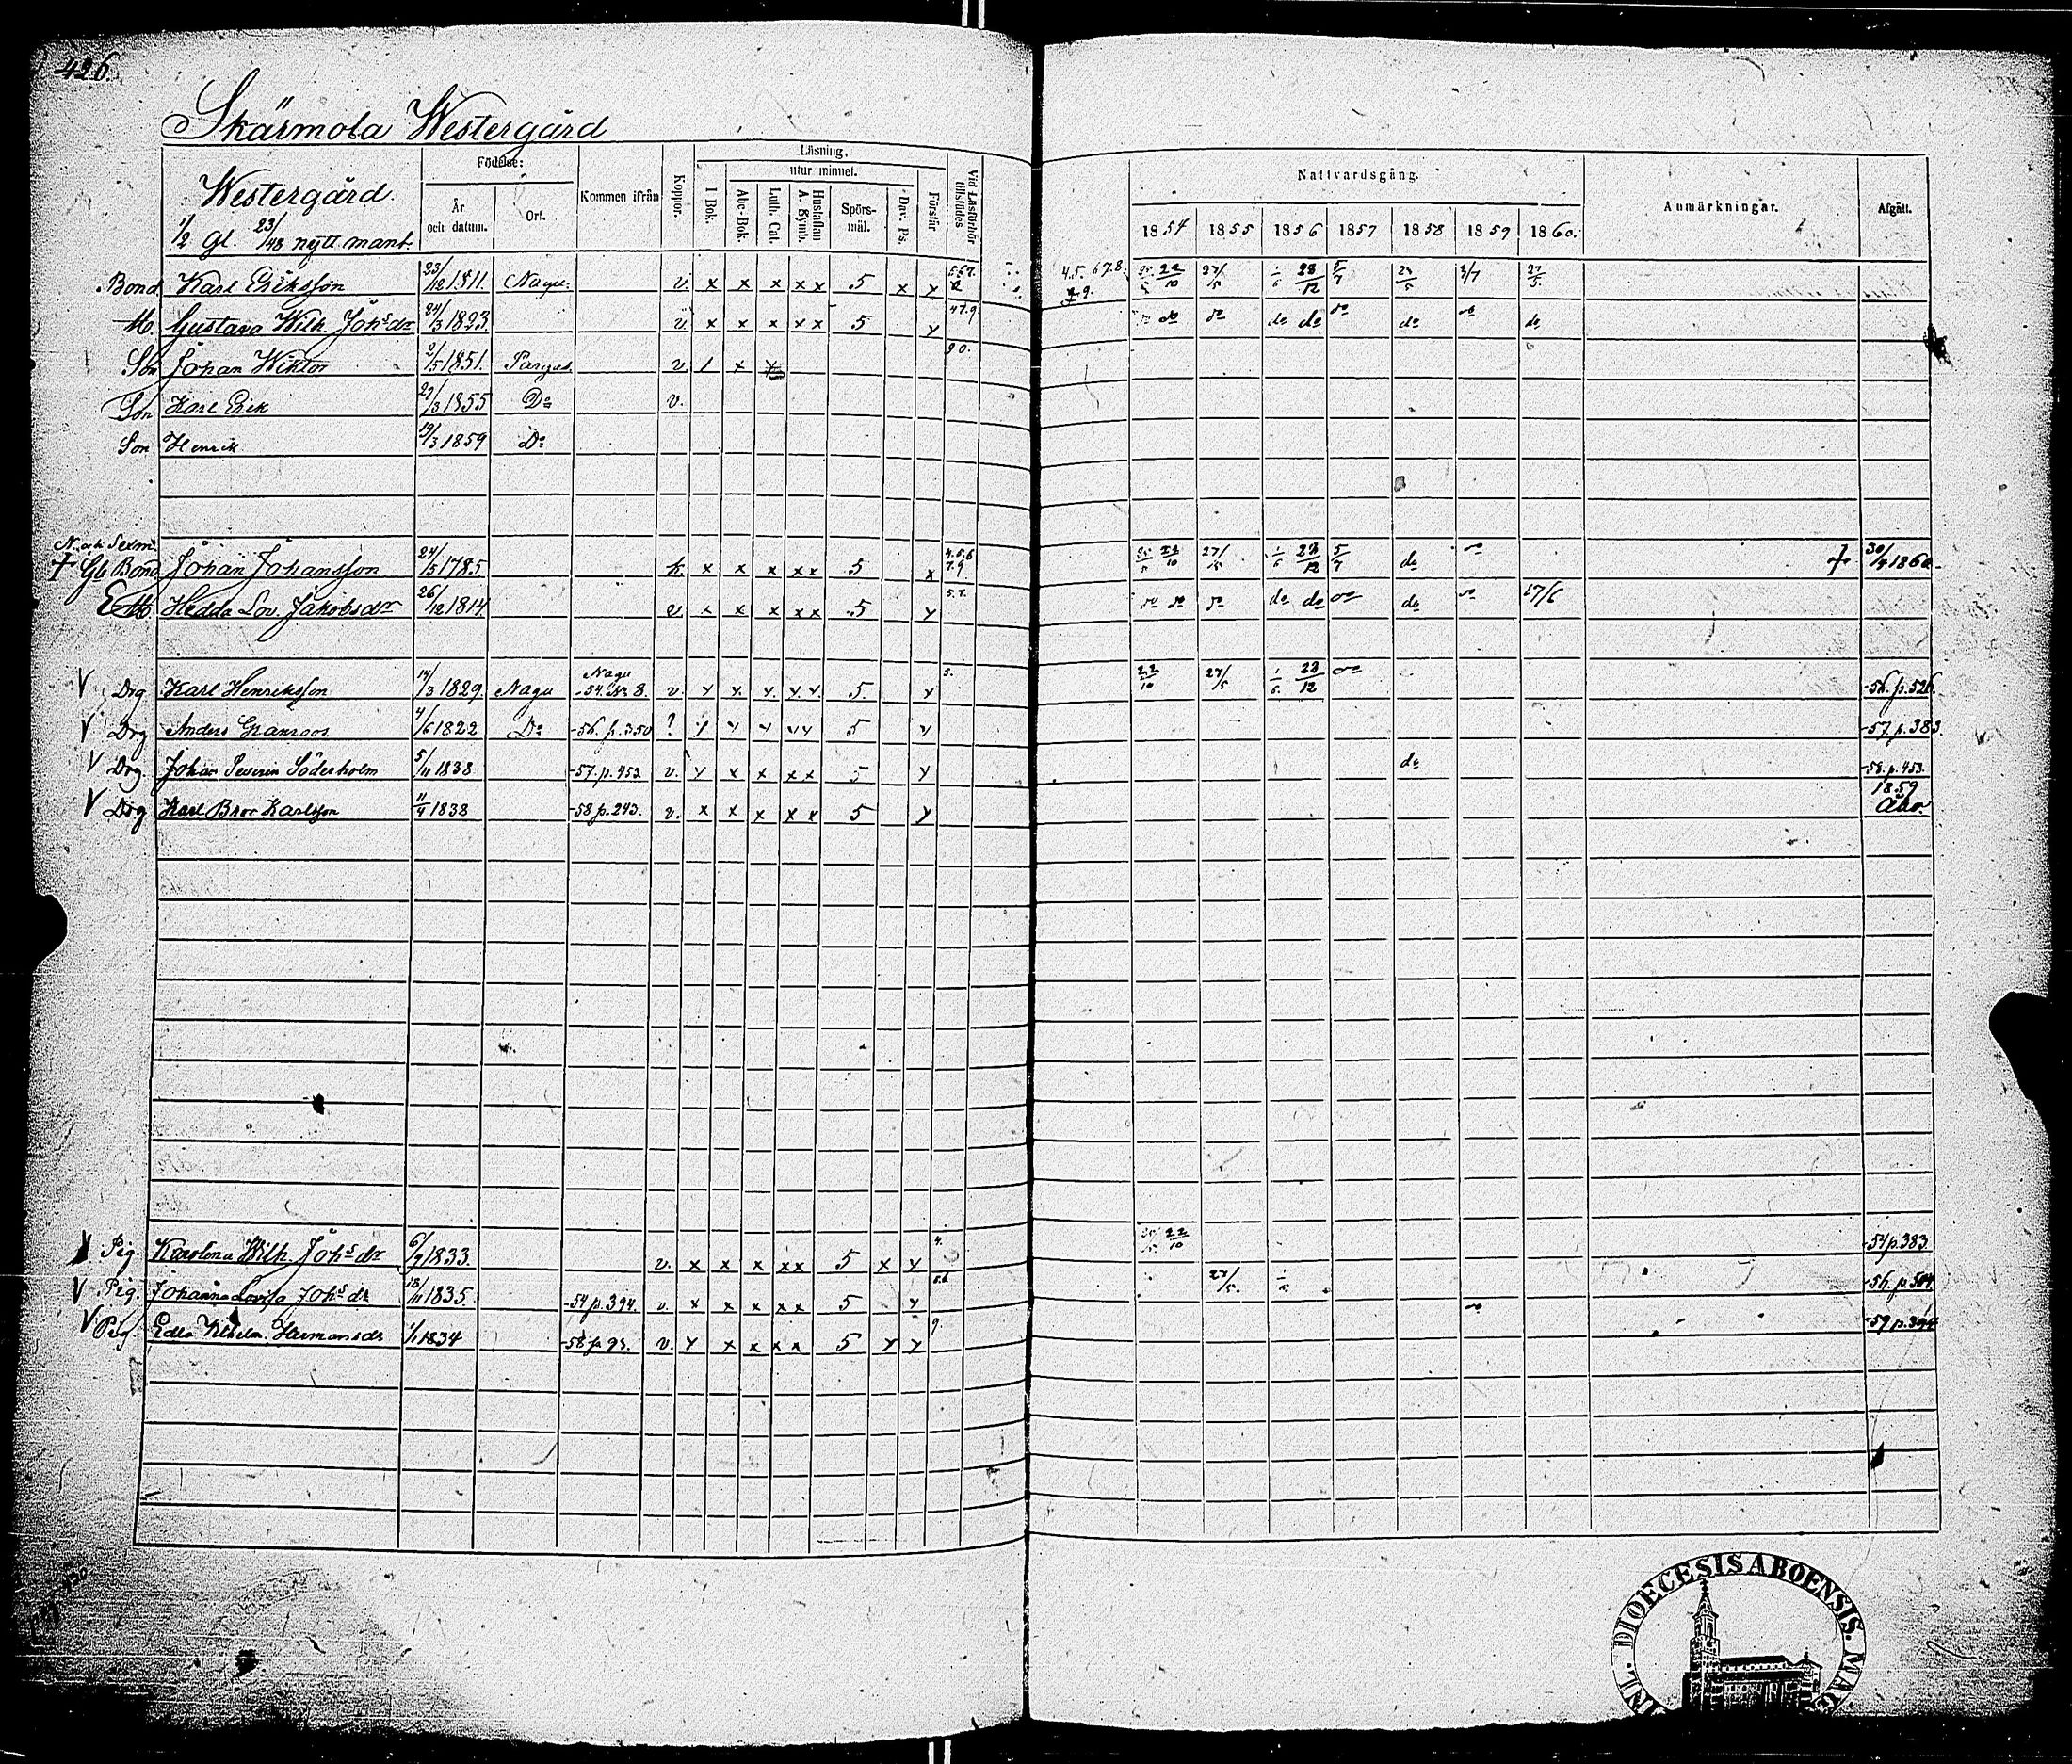 426.
Skärmola Westergård
Westergård.
1/2 gl. 23/48 nytt mant.
Födelse:
År och datum.
Ort.
Kommen ifrån
Koppor.
Läsning.
I Bok.
utur minnet.
Abc-Bok.
Luth. Cat.
Hustaflan A. Symb.
Spörsmål.
Dav. Ps.
Förstår
Vid Läsförhör tillstädes
Nattvardsgång.
1854 1855 1856 1857 1858 1859 1860.
Anmärkningar.
Afgått.
Bond. Karl Eriksson 23/12 1811. Nagu. v. x x x x x 5 x y 5.6.7. 4.5.6.7.8. 9. 22/10 27/5 28/12 5/7 24/5 3/7 27/5
H. Gustava Wilh. Johsdr 24/3 1823. v. x x x x x 5 y 4.7.9. do do do do do do do do
Son Johan Wiktor 2/5 1851. Pargas v. / x x 9 0.
Son Karl Erik 27/3 1855 Do v.
Son Henrik 19/3 1859 Do
N. och Sexm.
† Gl. Bond Johan Johansson 24/5 1785. k. x x x x x 5 x 4.5.6 7.9. 22/10 27/5 28/12 5/7 do do † 30/4 1860.
E. H. Hedda Lov. Jakobsdr 26/12 1814 v. x x x x x 5 y 5.7. do do do do do do do do 17/6
V Drg Karl Henriksson 14/3 1829. Nagu Nagu -54. No 8. v. y x y y y 5. y 5. 22/10 27/5 28/12 do -56. p. 526.
V Drg Anders Granroos. 4/6 1822 Do -56. p. 350 ? y y y y y 5 y -57. p. 383.
V Drg. Johan Severin Söderholm 5/11 1838 -57. p. 453. v. y x x x x 5 y do -58. p. 453.
V Drg Karl Bror Karlsson 11/4 1838 -58 p. 243. v. x x x x x 5 y 1859 Åbo.
V Pig. Karolina Wilh. Johsdr 6/9 1833. v. x x x x x 5 x y 4. 22/10 -54 p. 383.
V Pig. Johanna Lovisa Johsdr 18/11 1835. -54 p. 394. v. x x x x x 5 y 5.6. 27/5. -56. p. 504.
V Pig. Edla Vilhelm. Hermansdr 1/1 1834 -58 p. 93. v. y x x x x 5 y y 9. do -59 p. 394
DIOECESIS ABOENSIS.